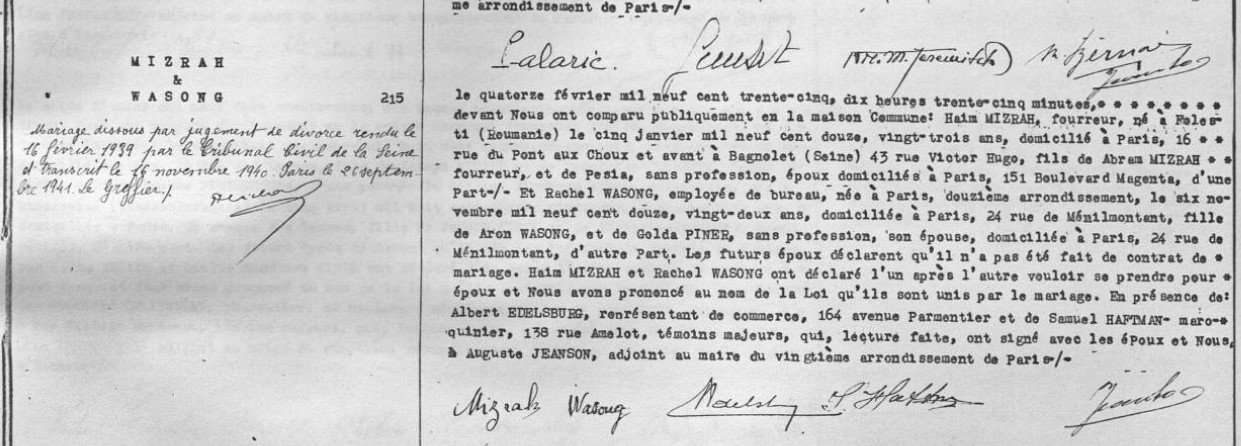 me arrondissement de Paris-/-
Lalaric.
MIZRAH
&
WASONG 215
Mariage dissous par jugement de divorce rendu le
16 février 1939 par le Tribunal Civil de la Seine
et transcrit le 16 novembre 1940. Paris le 26 septem-
bre 1941. Le Greffier./
le quatorze février mil neuf cent trente-cinq, dix heures trente-cinq minutes,* * * * * * *
devant Nous ont comparu publiquement en la maison Commune: Haim MIZRAH, fourreur, né à Foles-
ti (Roumanie) le cinq janvier mil neuf cent douze, vingt-trois ans, domicilié à Paris, 16 * *
rue du Pont aux Choux et avant à Bagnolet (Seine) 43 rue Victor Hugo, fils de Abram MIZRAH * *
fourreur, et de Pesia, sans profession, époux domiciliés à Paris, 151 Boulevard Magenta, d'une
Part-/- Et Rachel WASONG, employée de bureau, née à Paris, douzième arrondissement, le six no-
vembre mil neuf cent douze, vingt-deux ans, domiciliée à Paris, 24 rue de Ménilmontant, fille
de Aron WASONG, et de Golda PINER, sans profession, son épouse, domiciliée à Paris, 24 rue de
Ménilmontant, d'autre Part. Les futurs époux déclarent qu'il n'a pas été fait de contrat de *
mariage. Haim MIZRAH et Rachel WASONG ont déclaré l'un après l'autre vouloir se prendre pour *
époux et Nous avons prononcé au nom de la Loi qu'ils sont unis par le mariage. En présence de:
Albert EDELSBURG, renrésentant de commerce, 164 avenue Parmentier et de Samuel HAFTMAN- maro-*
quinier, 138 rue Amelot, témoins majeurs, qui, lecture faite, ont signé avec les époux et Nous,
Auguste JEANSON, adjoint au maire du vingtième arrondissement de Paris-/-
Mizrah Wasong